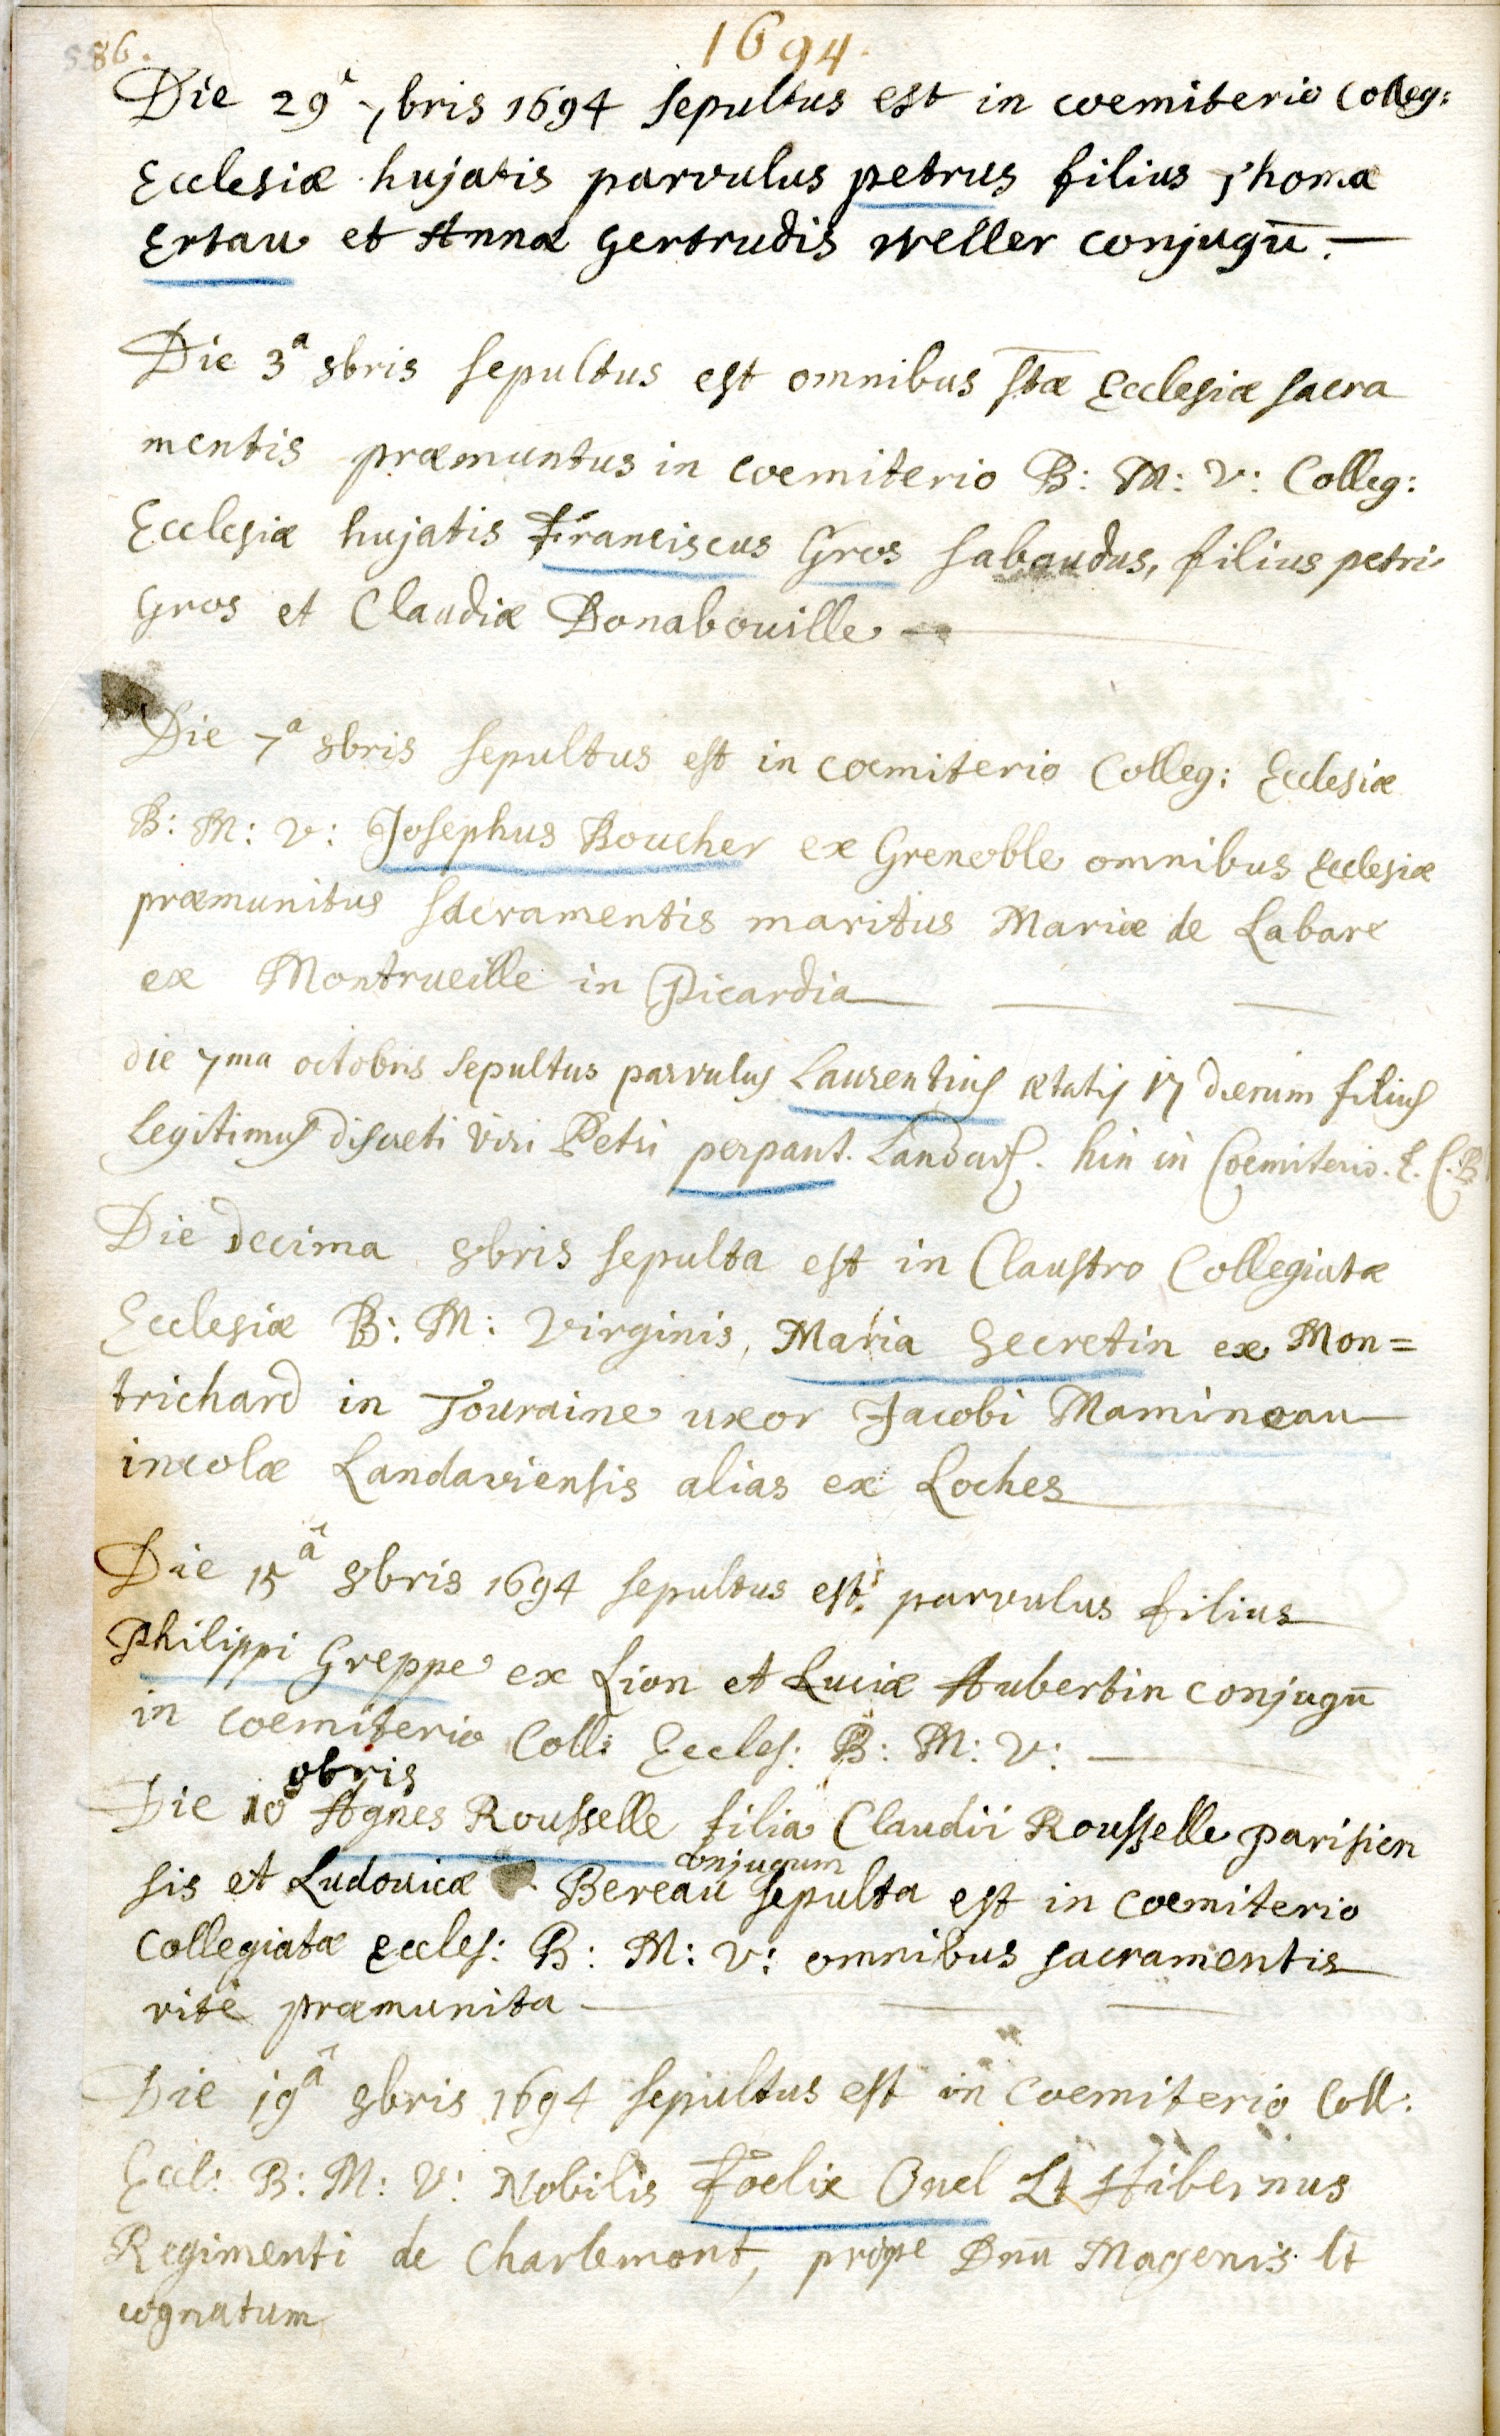 586.
1694.
Die 29â 7bris 1694 sepultus est in coemiterio Colleg:
Ecclesiæ hujatis parvulus petrus filius Thoma
Ertau et Annæ Gertrudis Weller conjugū.—
Die 3ª 8bris sepultus est omnibus stæ Ecclesiæ sacra
mentis præmuntus in coemiterio B: M: V: Colleg:
Ecclesiæ hujatis Franciscus Gros sabaudus, filius petri
Gros et Claudiæ Bonabouille —
Die 7ª 8bris sepultus est in coemiterio Colleg: Ecclesiæ
B: M: V: Josephus Boucher ex Grenoble omnibus Ecclesiæ
præmunitus sacramentis maritus Mariæ de Labare
ex Montrueille in Picardia — — —
die 7ma octobris sepultus parvulus Laurentius ætatis 17 dierum filius
Legitimus discreti viri Petri perpant. Landavs. hin in Coemiterio. E. C. B
Die decima 8bris sepulta est in Claustro Collegiatæ
Ecclesiæ B: M: Virginis, Maria Secretin ex Mon=
trichard in Touraine uxor Jacobi Mamineau
incolæ Landaviensis alias ex Loches
Die 15â 8bris 1694 sepultus est parvulus filius
Philippi Greppe ex Lion et Luciæ Aubertin conjugū
in coemiterio Coll: Eccles: B: M: V: —
8bris
Die 10 Agnes Rousselle filia Claudii Rousselle parisien
conjugum
sis et Ludovicæ Bereau sepulta est in coemiterio
Collegiatæ eccles: B: M: V: omnibus sacramentis
rite præmunita — — —
Die 19â 8bris 1694 sepultus est in coemiterio Coll:
Eccl: B: M: V: Nobilis Foelix Onel Lt Hibernus
Regimenti de Charlemont, prope Dnū Magenis Lt
cognatum